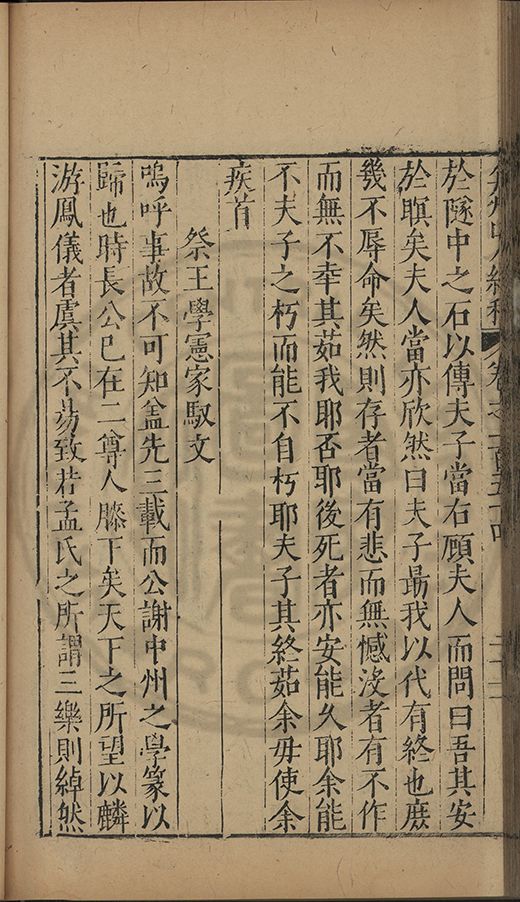 弇州山人續稿 卷之一百五十四
於隧中之石以傳夫子當右顧夫人而問曰吾其安
於瞑矣夫人當亦欣然曰夫子勗我以代有終也庶
幾不辱命矣然則存者當有悲而無憾沒者有不作
而無不幸其茹我耶否耶後死者亦安能久耶余能
不夫子之朽而能不自朽耶夫子其終茹余毋使余
疾首
祭王學憲家馭文
嗚呼事故不可知盆先三載而公謝中州之學篆以
歸也時長公已在二尊人膝下矣天下之所望以麟
游鳳儀者虞其不易致若孟氏之所謂三樂則綽然